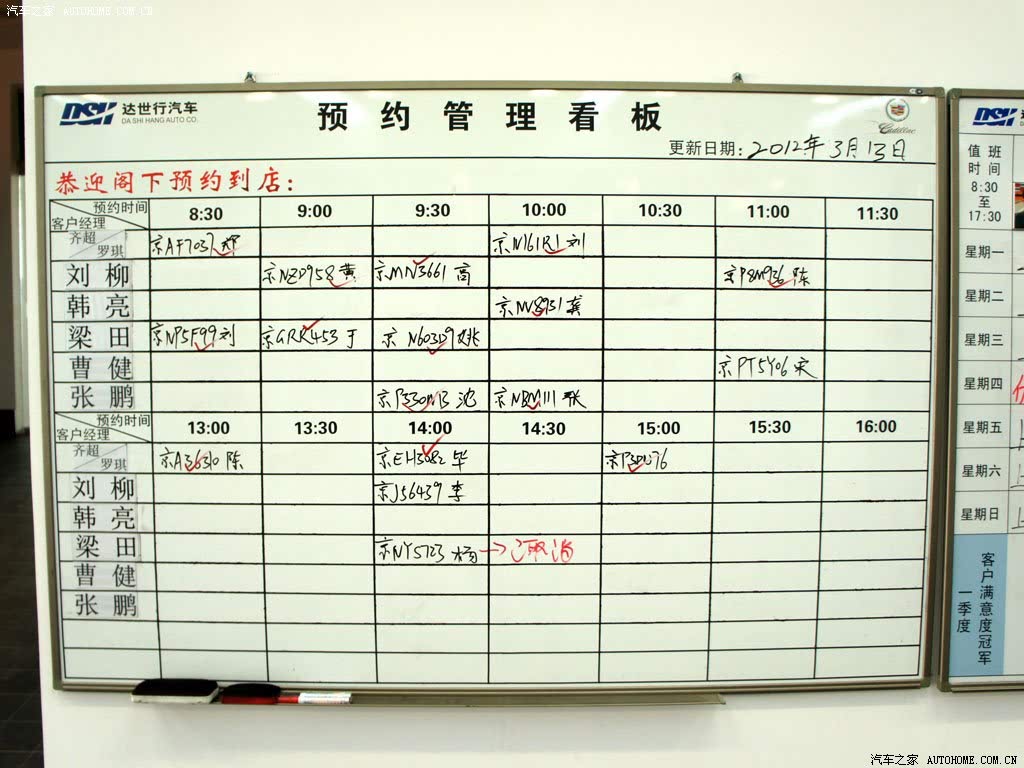 汽车之家 AUTOHOME.COM.CN
DSH 达世行汽车
DA SHI HANG AUTO CO.
预约管理看板
Cadillac
更新日期: 2012年3月13日
恭迎阁下预约到店:
预约时间 客户经理 8:30 9:00 9:30 10:00 10:30 11:00 11:30
齐超 罗琪 京AF7037 郑 京N161R1 刘
刘柳 京NZD958 黄 京MN3661 高 京P8M936 陈
韩亮 京NV8931 龚
梁田 京NP5F99 刘 京GRK453 于 京N603D9 姚
曹健 京PT5Y06 宋
张鹏 京P330MB 沈 京NBM111 张
预约时间 客户经理 13:00 13:30 14:00 14:30 15:00 15:30 16:00
齐超 罗琪 京A36310 陈 京EH3082 毕
刘柳 京J56439 李
韩亮
梁田 京NY5723 杨 → 已取消
曹健
张鹏
DSH
值班
时间
8:30
至
17:30
星期一
星期二
星期三
星期四
星期五
星期六
星期日
客户满意度冠军
一季度
汽车之家 AUTOHOME.COM.CN